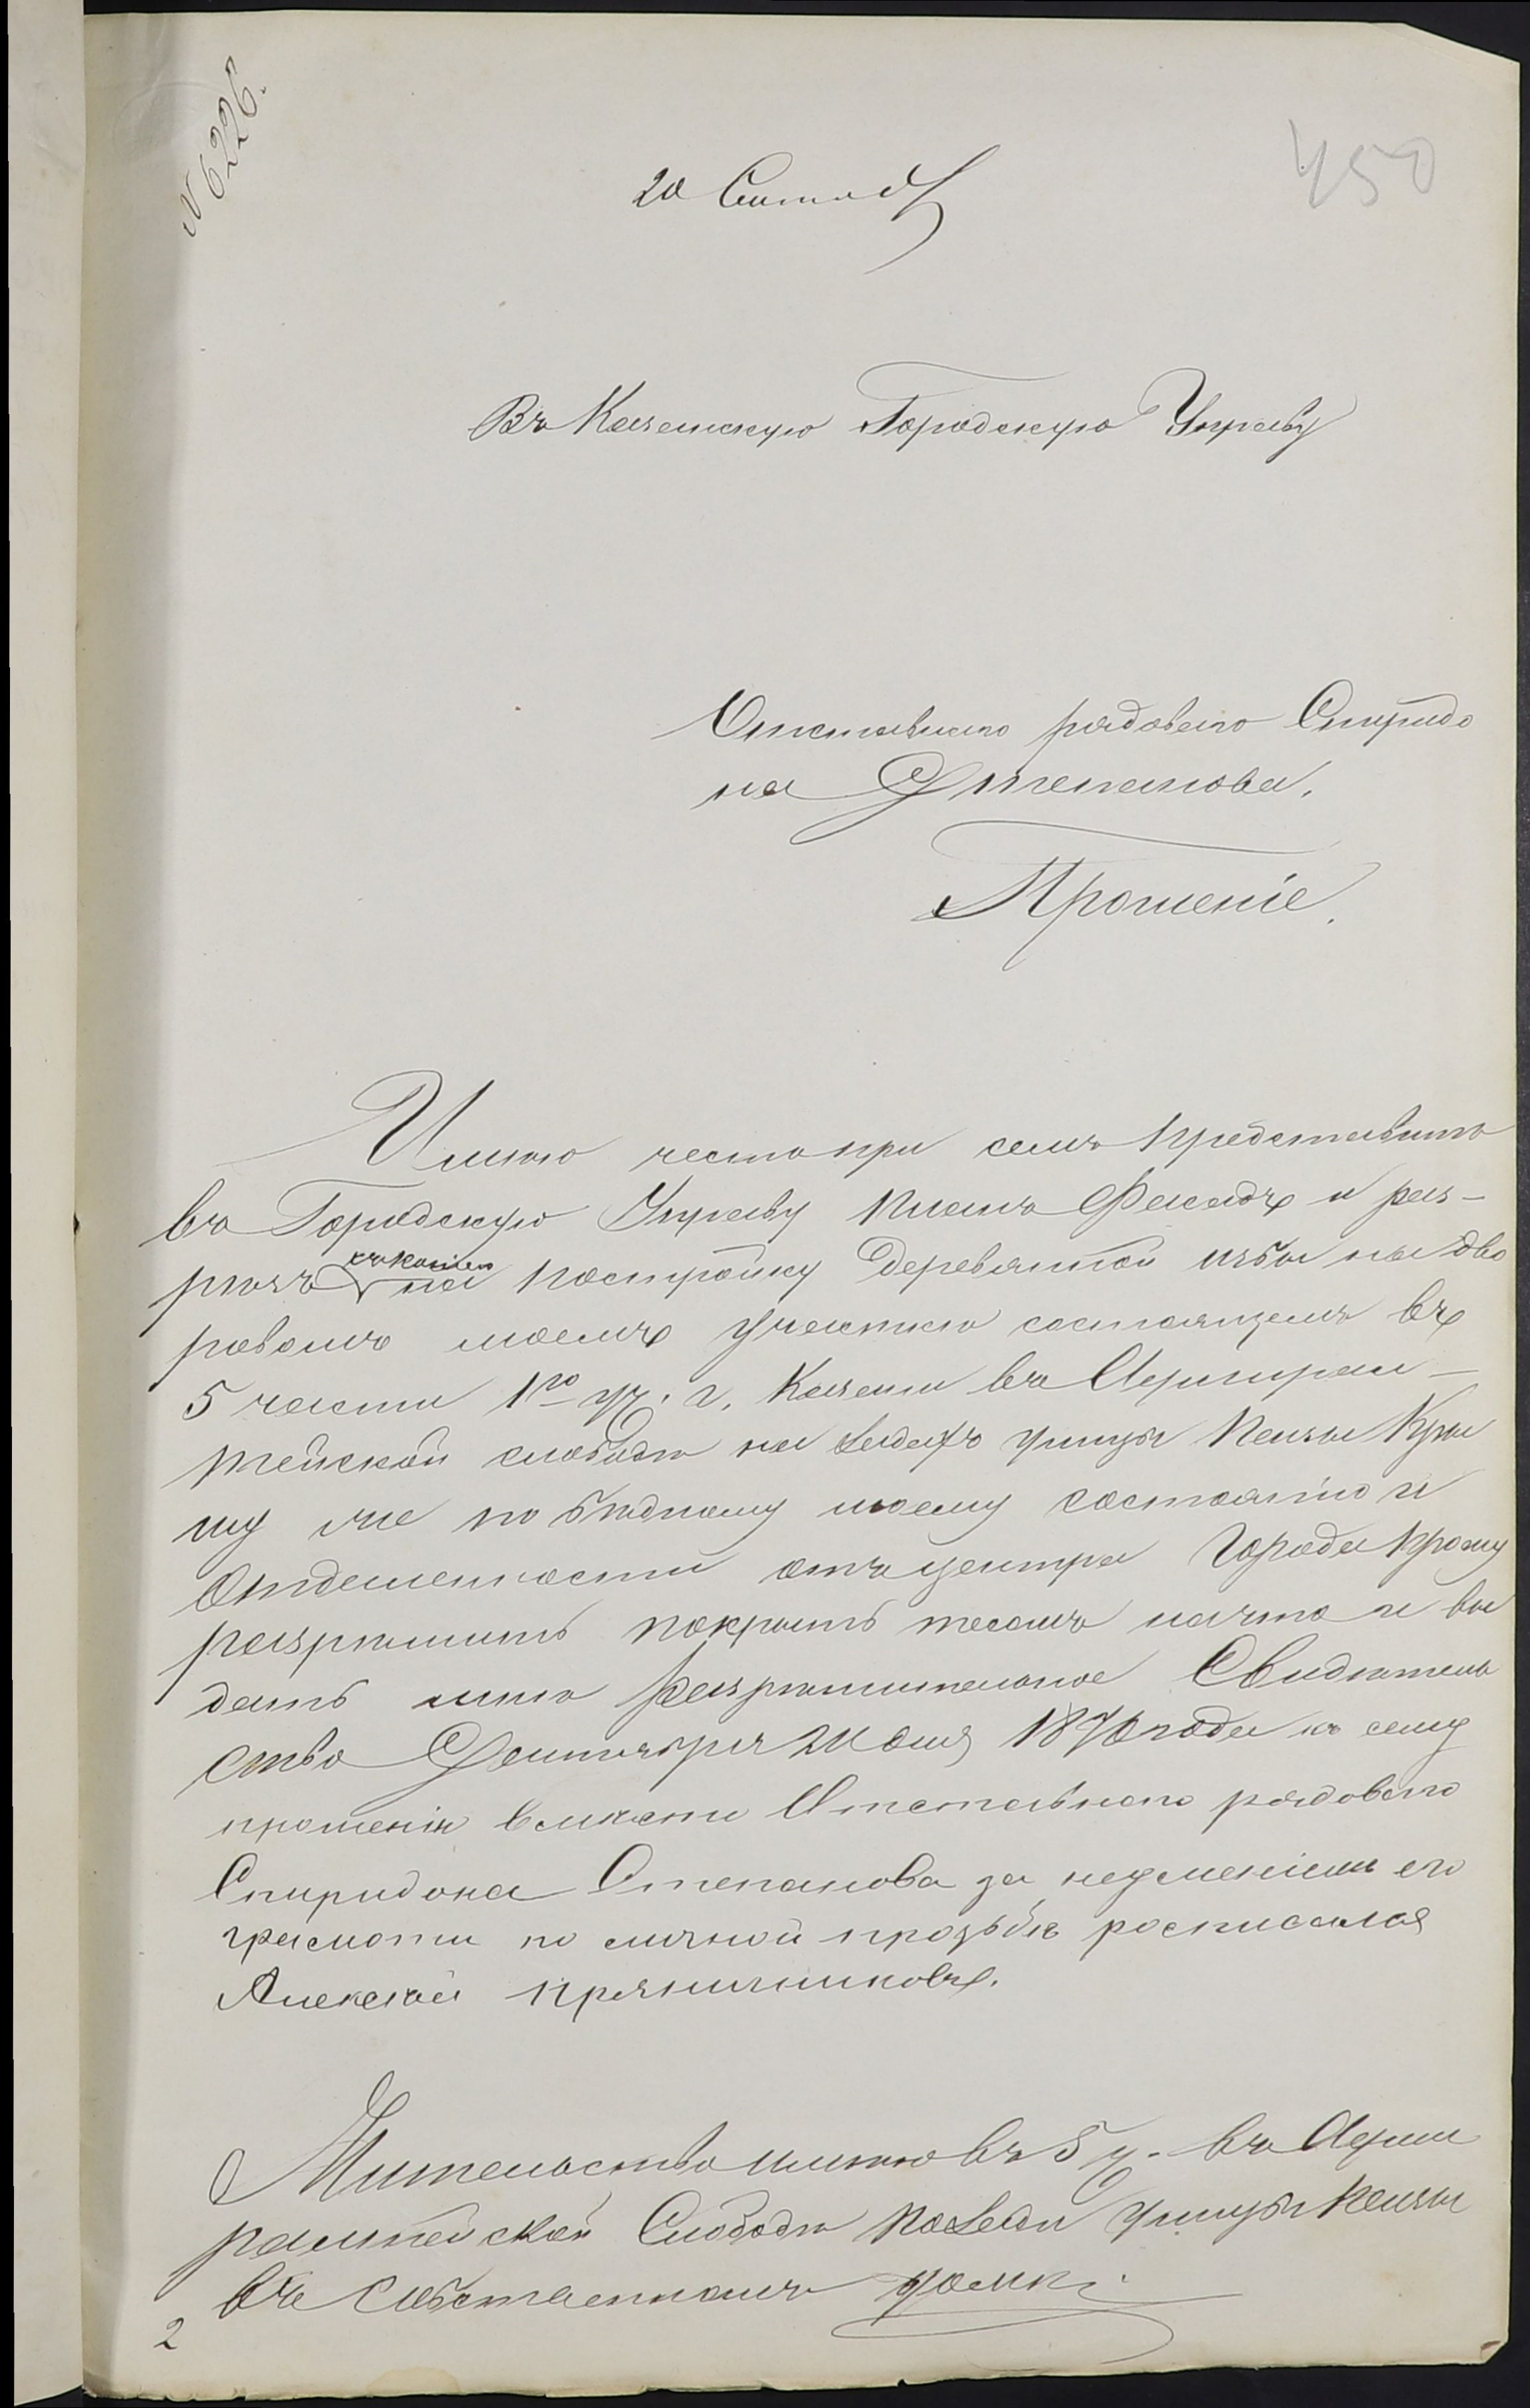 N 6226.
450
20 Сентяб
Въ Казанскую Городскую Управу
Отставнаго рядоваго Спиридо
на Степанова.
Прошеніе.
Имѣю честь при семъ представить
въ Городскую Управу планъ фасадъ и раз-
рѣзъ съ копіей на постройку деревянной избы на дво
ровомъ моемъ участкѣ состоящемъ въ
5 части 1го уч. г. Казани въ
слободѣ на задахъ улицы
по бѣдному моему состоянію и
отдаленности отъ центра города прошу
разрѣшить покрыть тесомъ и вы
дать мнѣ разрѣшительное Свидѣтель
ство Сентября дня 1876 года къ сему
прошенію вмѣсто Отставнаго рядоваго
Спиридона Степанова за неумѣніемъ его
грамоты по личной прозьбѣ росписался
Алексѣй Пряничниковъ.
Жительство имѣю въ 5 ч. въ
Слободѣ улицы
въ собственномъ домѣ.
2